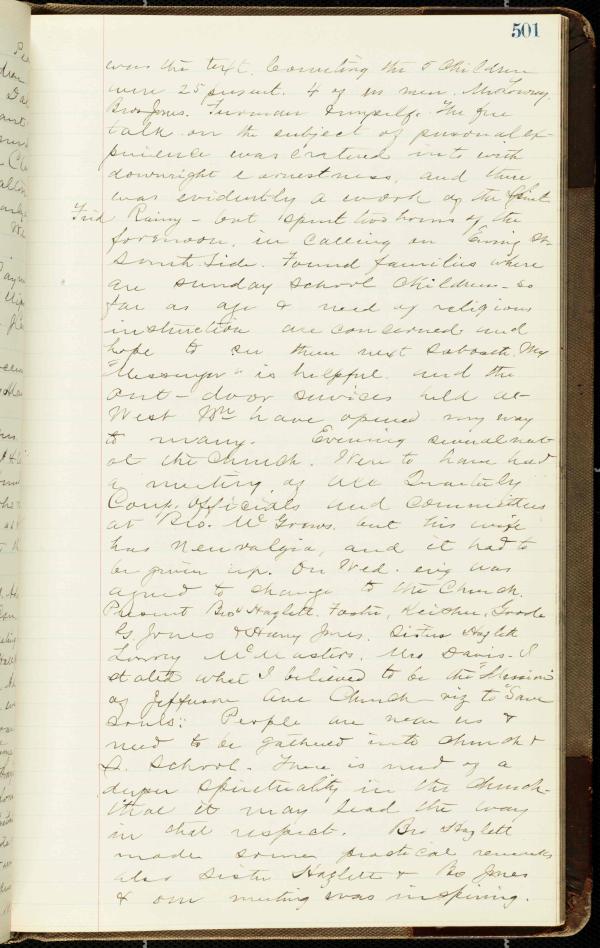 501
was the text. Counting the 5 children
were 25 present. 4 of us men. Mr Lowry,
Bro Jones. Furman & myself. The free
talk on the subject of personal ex-
perience was entered into with
downright earnestness, and there
was evidently a work of the Spirit
Frid Rainy - but spent two hours of the
forenoon, in calling on Ewing St
South Side. Found families where
are Sunday School children - so
far as age & need of religious
instruction are concerned and
hope to see them next Sabbath. My
"Messenger" is helpful. and the
out-door services held at
West Wn have opened my way
to many. Evening several met
at the church. Were to have had
a meeting of all Quarterly
Conf. officials and committees
at Bro. McGrews. but his wife
has Neuralgia, and it had to
be given up. On Wed. evg was
agreed to change to the Church.
Present Bros Hazlett. Foster, Keicher, Goode
G. Jones & Harry Jones. Sisters Hazlett
Lowry McMasters. Mrs Davis. I
stated what I believed to be the "Mission
of Jefferson Ave Church - viz to "Save
souls": People are near us &
need to be gathered into church &
S. School. There is need of a
deeper spirituality in the church
that it may lead the way
in that respect. Bro Hazlett
made some practical remarks
also Sister Hazlett & Bo Jones
& our meeting was inspiring.